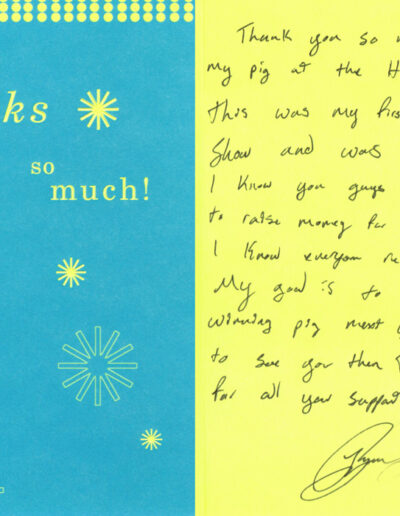 ks
so
much!
Thank you so
my pig at the H
This was my firs
Show and was
I know you guys
to raise money for
I know everyone
My goal is to
winning pig next
to see you then
for all your support